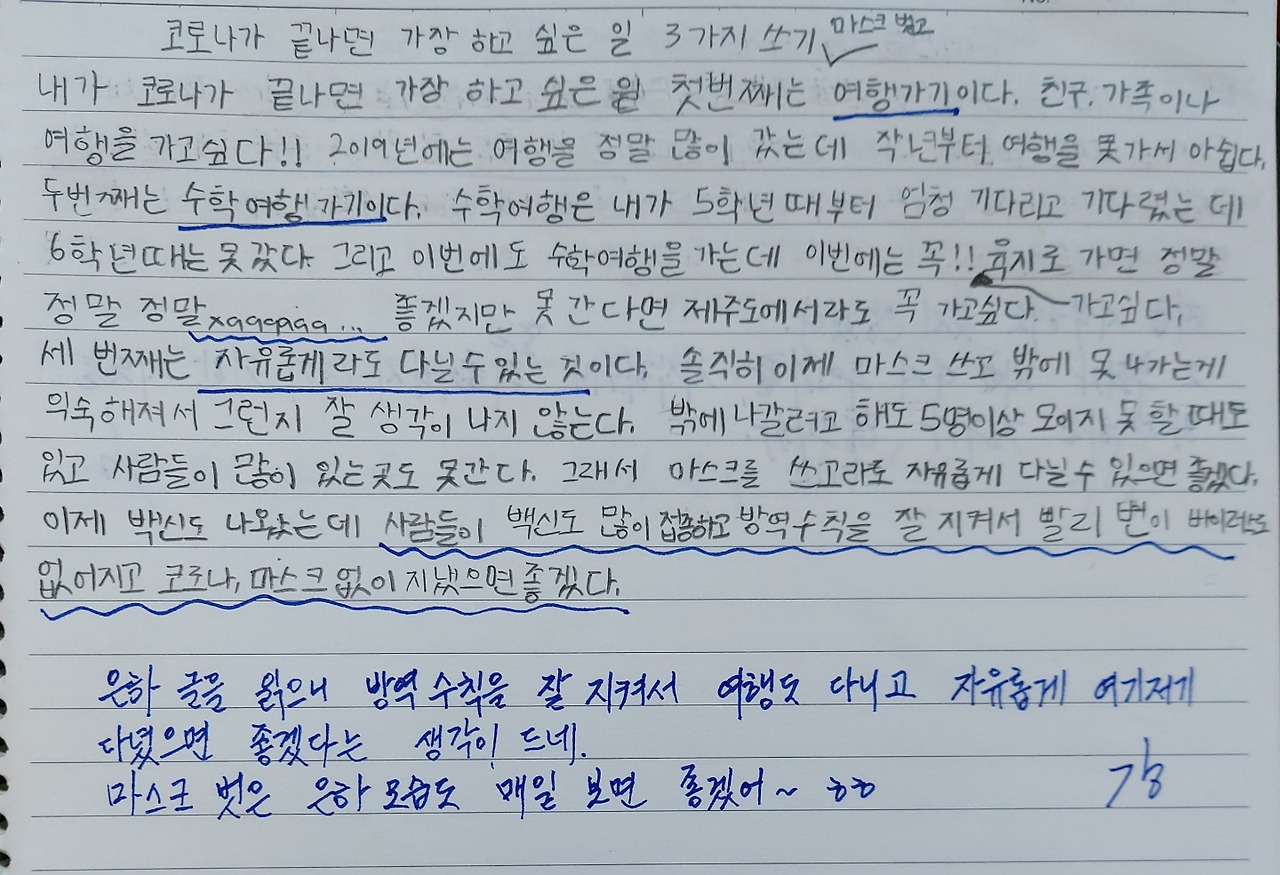 코로나가 끝나면 가장 하고 싶은 일 3가지 쓰기 마스크 벗고
내가 코로나가 끝나면 가장 하고 싶은 일 첫번째는 여행가기이다. 친구, 가족이나
여행을 가고싶다!! 2019년에는 여행을 정말 많이 갔는데 작년부터 여행을 못가서 아쉽다.
두번째는 수학여행 가기이다. 수학여행은 내가 5학년때부터 엄청 기다리고 기다렸는데
6학년때는 못 갔다. 그리고 이번에도 수학여행을 가는데 이번에는 꼭!! 육지로 가면 정말
정말 정말 ... 좋겠지만 못 간다면 제주도에서라도 꼭 가고싶다. 가고싶다.
세 번째는 자유롭게라도 다닐 수 있는 것이다. 솔직히 이제 마스크 쓰고 밖에 못 나가는게
익숙해져서 그런지 잘 생각이 나지 않는다. 밖에 나갈려고 해도 5명이상 모이지 못 할 때도
있고 사람들이 많이 있는곳도 못간다. 그래서 마스크를 쓰고라로 자유롭게 다닐 수 있으면 좋겠다.
이제 백신도 나왔는데 사람들이 백신도 많이 접종하고 방역수칙을 잘 지켜서 빨리 변이
없어지고 코로나, 마스크 없이 지냈으면 좋겠다.
은하 글을 읽으니 방역 수칙을 잘 지켜서 여행도 다니고 자유롭게 여기저기
다녔으면 좋겠다는 생각이 드네.
마스크 벗은 은하 모습도 매일 보면 좋겠어~ ㅎㅎ
강